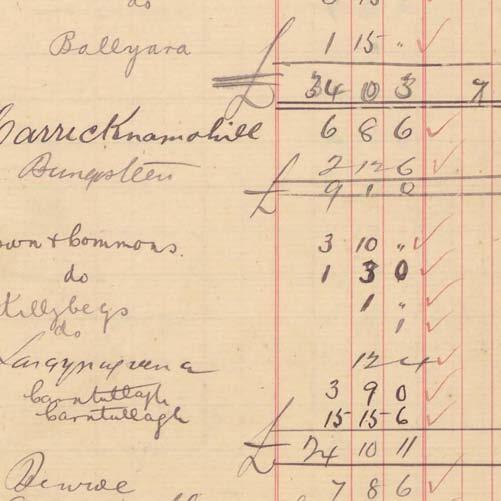 do
Ballyara 1 15 "
£ 34 10 3
Carricknamohill 6 8 6
Bungosteen 2 12 6
£ 9 1 0
own + Commons. 3 10 "
do 1 3 0
Killybegs 1 "
do 1
12 4
Carntullagh 3 9 0
Carntullagh 15 15 6
£ 24 10 11
7 8 6